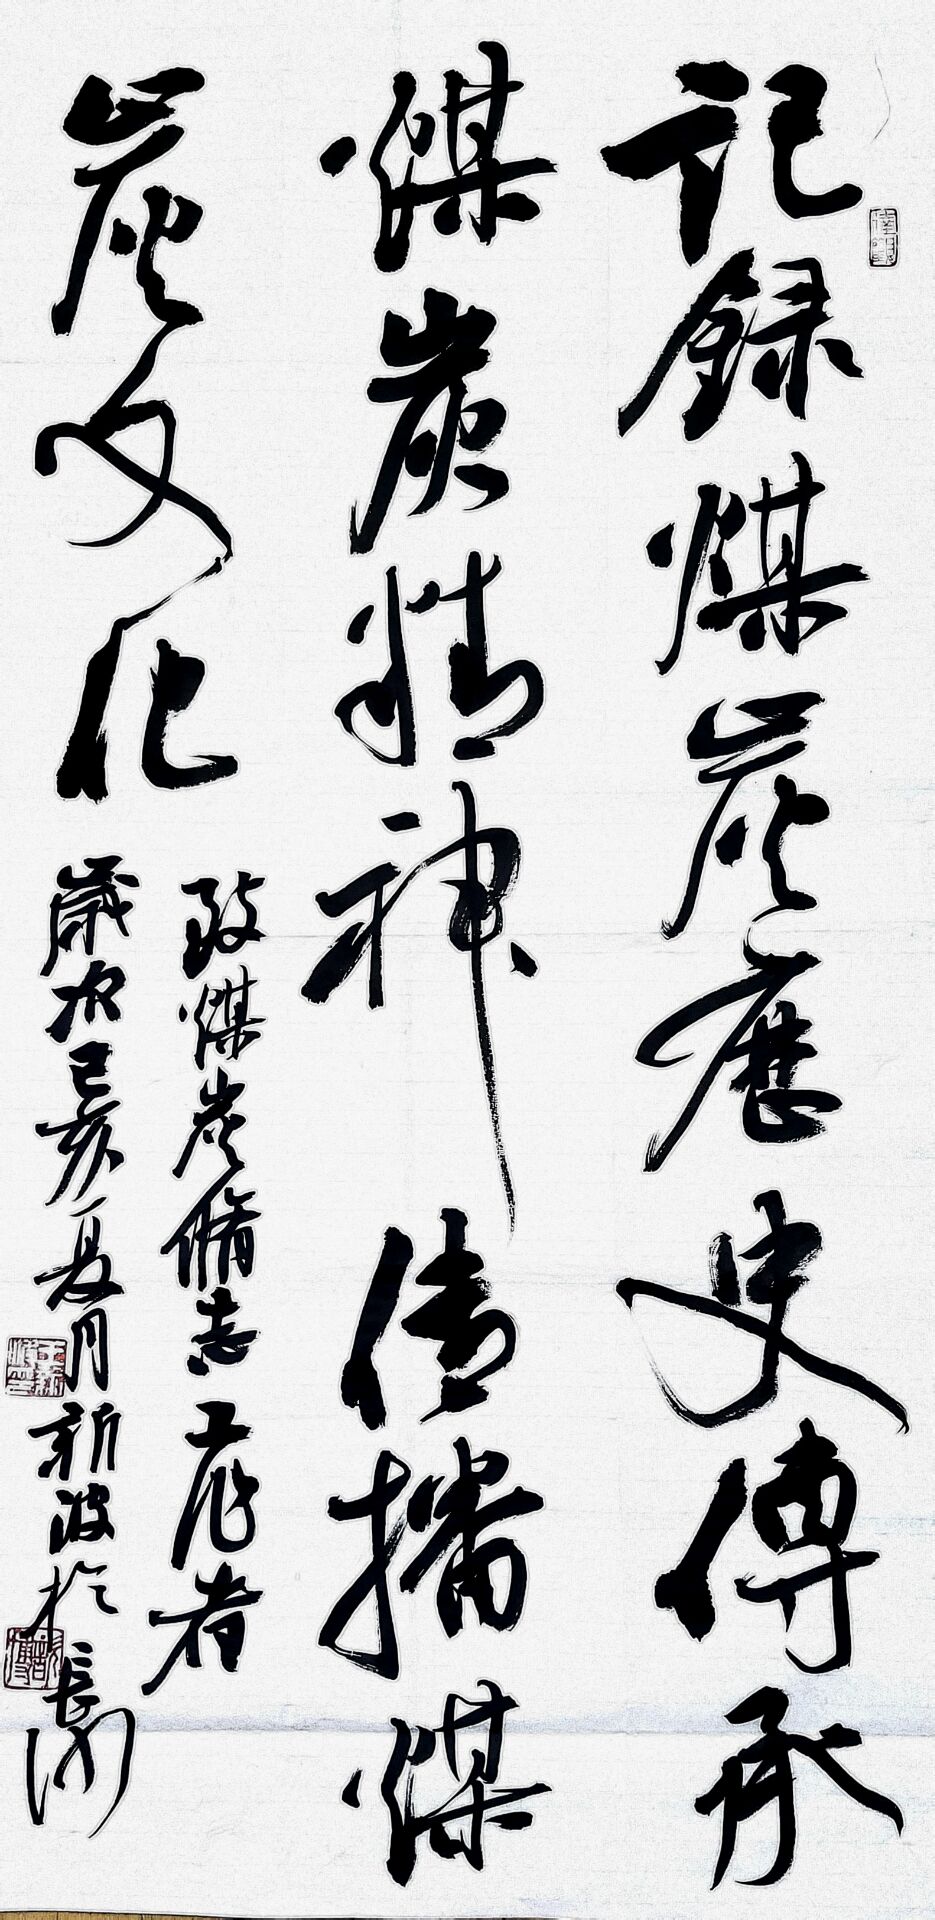 記録煤炭歷史傳承
煤炭精神傳播煤
炭文化
致煤炭脩志工作者
歲次己亥夏月新波於長沙